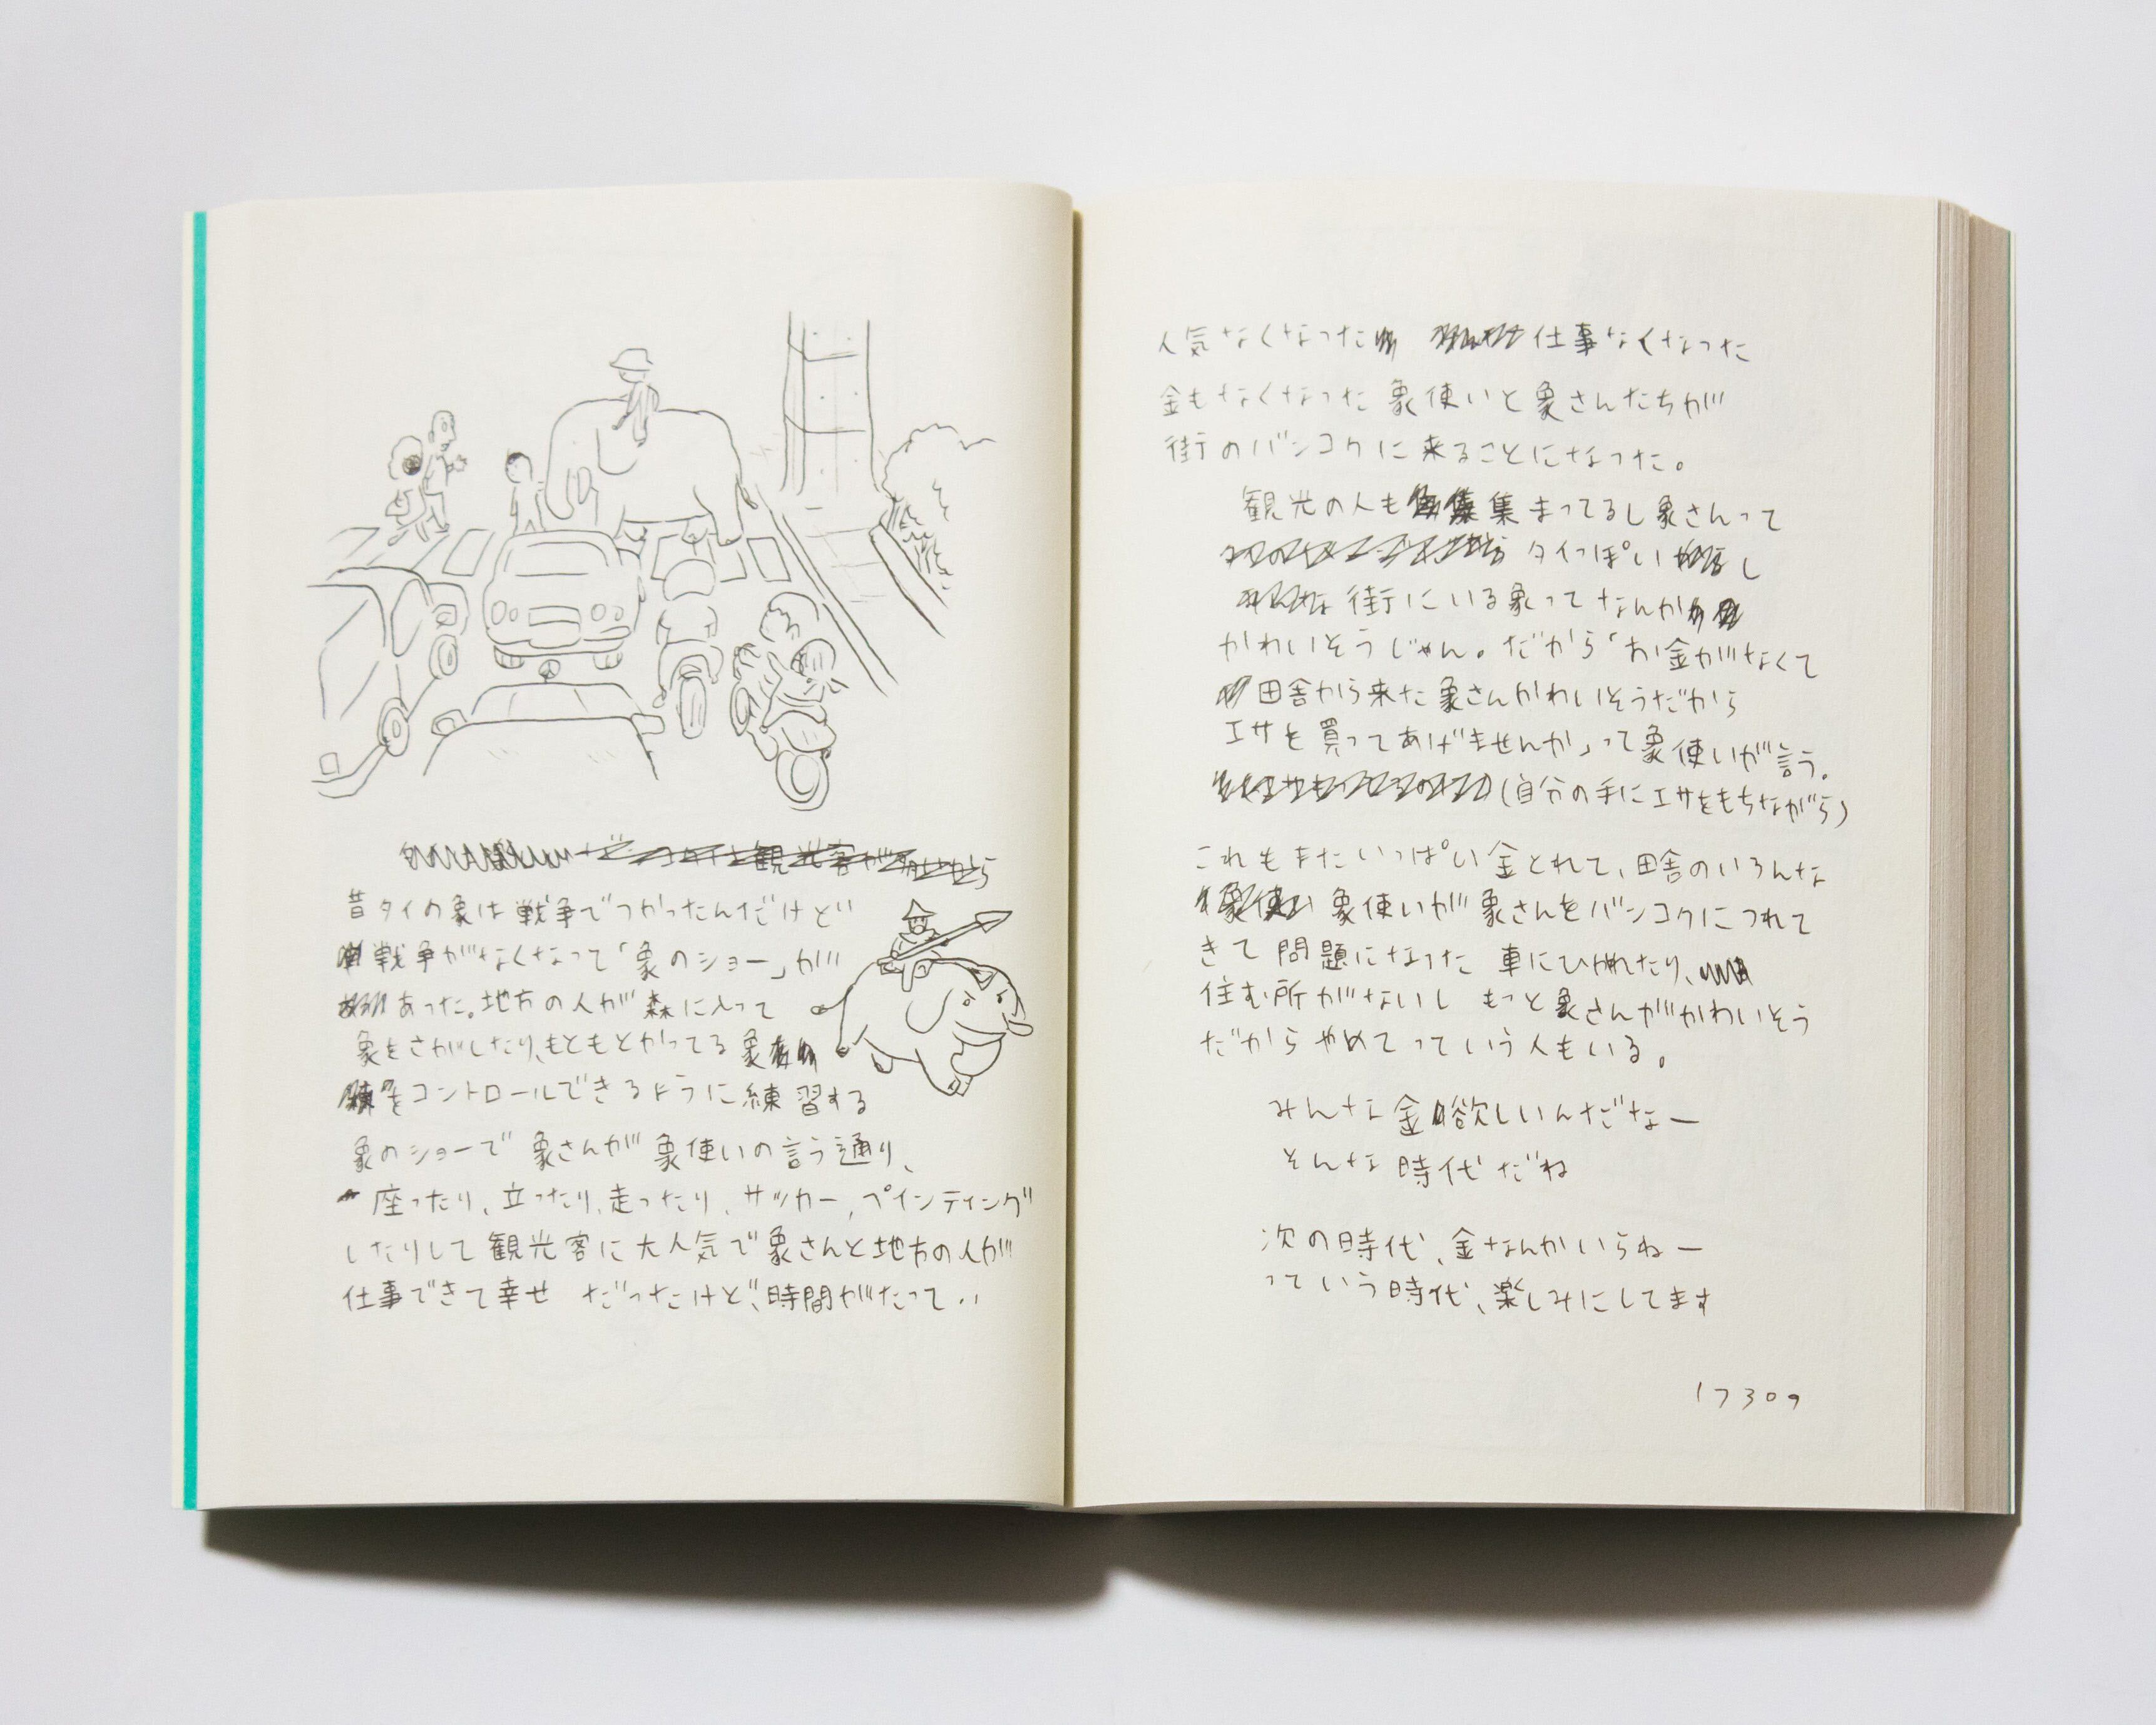 観光客が
昔タイの象は戦争でつかったんだけど
戦争がなくなって「象のショー」が
あった。地方の人が森に入って
象をさがしたり、もともとかってる象
をコントロールできるように練習する
象のショーで 象さんが象使いの言う通り、
座ったり、立ったり、走ったり、サッカー、ペインティング
したりして観光客に大人気で象さんと地方の人が
仕事できて幸せ だったけど、時間がたって..
人気なくなった 仕事なくなった
金もなくなった 象使いと象さんたちが
街のバンコクに来ることになった。
観光の人も集まってるし象さんって
タイっぽいし
街にいる象ってなんか
かわいそうじゃん。だから「お金がなくて
田舎から来た象さんかわいそうだから
エサを買ってあげませんか」って象使いが言う。
(自分の手にエサをもちながら)
これもまたいっぱい金とれて、田舎のいろんな
象使いが象さんをバンコクにつれて
きて問題になった 車にひかれたり、
住む所がないし もっと象さんがかわいそう
だからやめてっていう人もいる。
みんな金欲しいんだなー
そんな時代だね
次の時代、金なんかいらねー
っていう時代、楽しみにしてます
17309